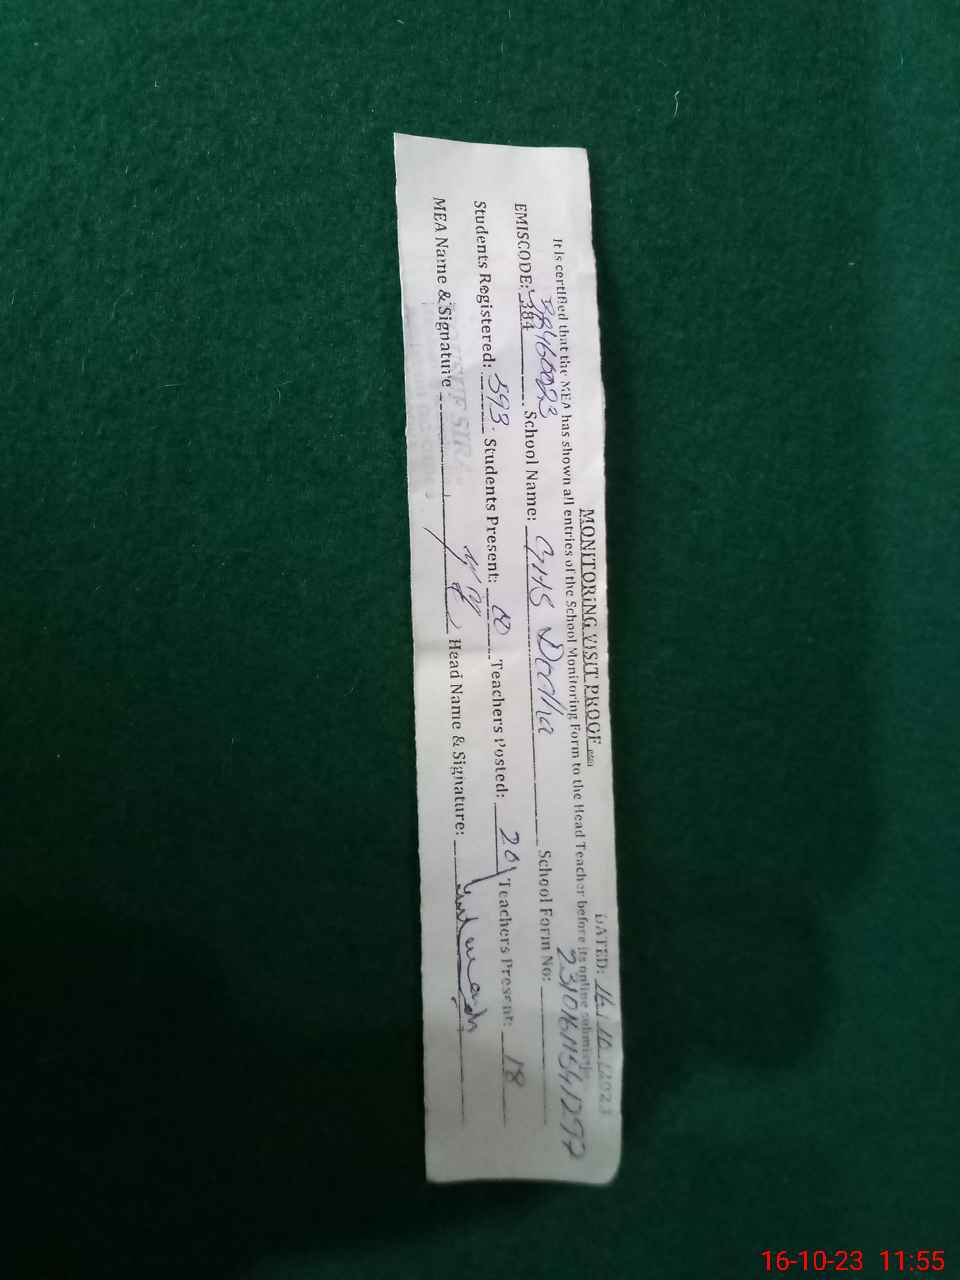 MONITORING VISIT PROOF
DATED: 16/10/2023
It is certified that the MEA has shown all entries of the School Monitoring Form to the Head Teacher before its online
EMISCODE: 384 School Name: GHS Dodha School Form No:
Students Registered: 593 Students Present: Teachers Posted: 20 Teachers Present: 18
MEA Name & Signature Head Name & Signature:
16-10-23 11:55